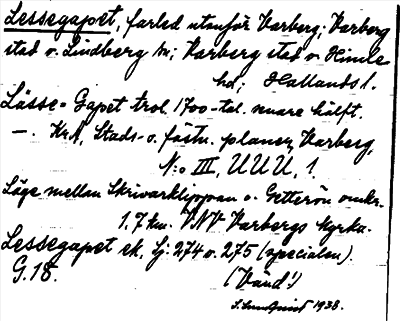 Lessegapet, farled utanför Varberg; Varberg
stad o. Lindberg sn; Varberg stad o. Himle
hd; Hallands l.
Lässe-Gapet trol. 1700-tal. senare hälft.
—. KrA, Stads- o. fästn. planer, Varberg,
N:o III, UUU, 1.
Läge mellan Skrivarklippan o. Getterön omkr.
1.7 km. VNV Varbergs kyrka.
Lessegapet ek. bl. 274 o. 275 (specialen).
G.18. (Vänd!)
1938.